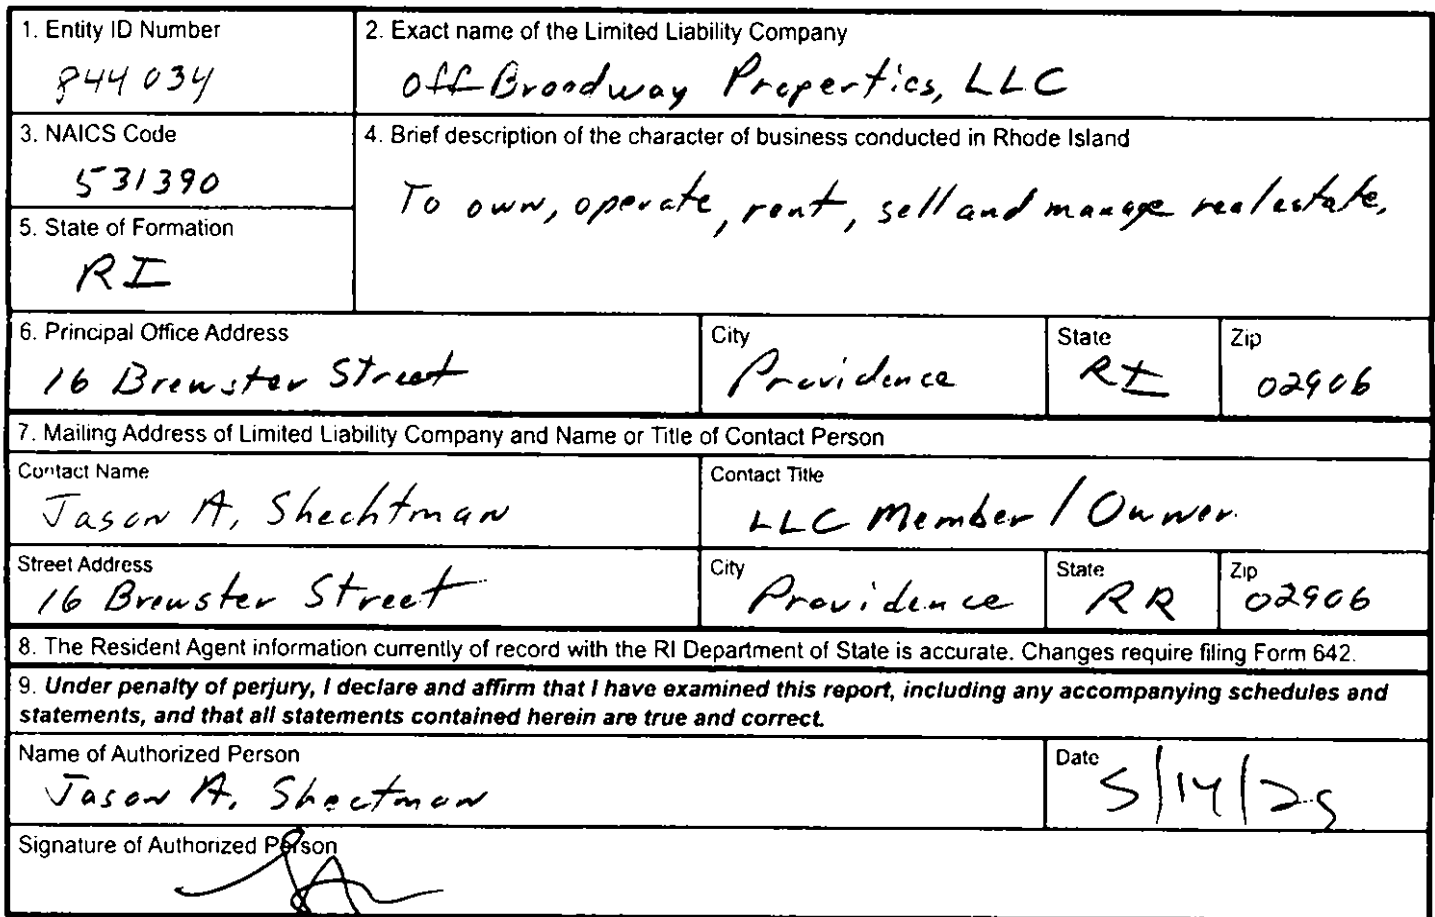 1. Entity ID Number
844034
2. Exact name of the Limited Liability Company
Off-Broadway Properties, LLC
3. NAICS Code
531390
4. Brief description of the character of business conducted in Rhode Island
To own, operate, rent, sell and manage real estate.
5. State of Formation
RI
6. Principal Office Address
16 Brewster Street
City
Providence
State
RI
Zip
02906
7. Mailing Address of Limited Liability Company and Name or Title of Contact Person
Contact Name
Jason A. Shechtman
Contact Title
LLC Member / Owner
Street Address
16 Brewster Street
City
Providence
State
RR
Zip
02906
8. The Resident Agent information currently of record with the RI Department of State is accurate. Changes require filing Form 642.
9. Under penalty of perjury, I declare and affirm that I have examined this report, including any accompanying schedules and
statements, and that all statements contained herein are true and correct.
Name of Authorized Person
Jason A. Shectman
Date
5/14/25
Signature of Authorized Person